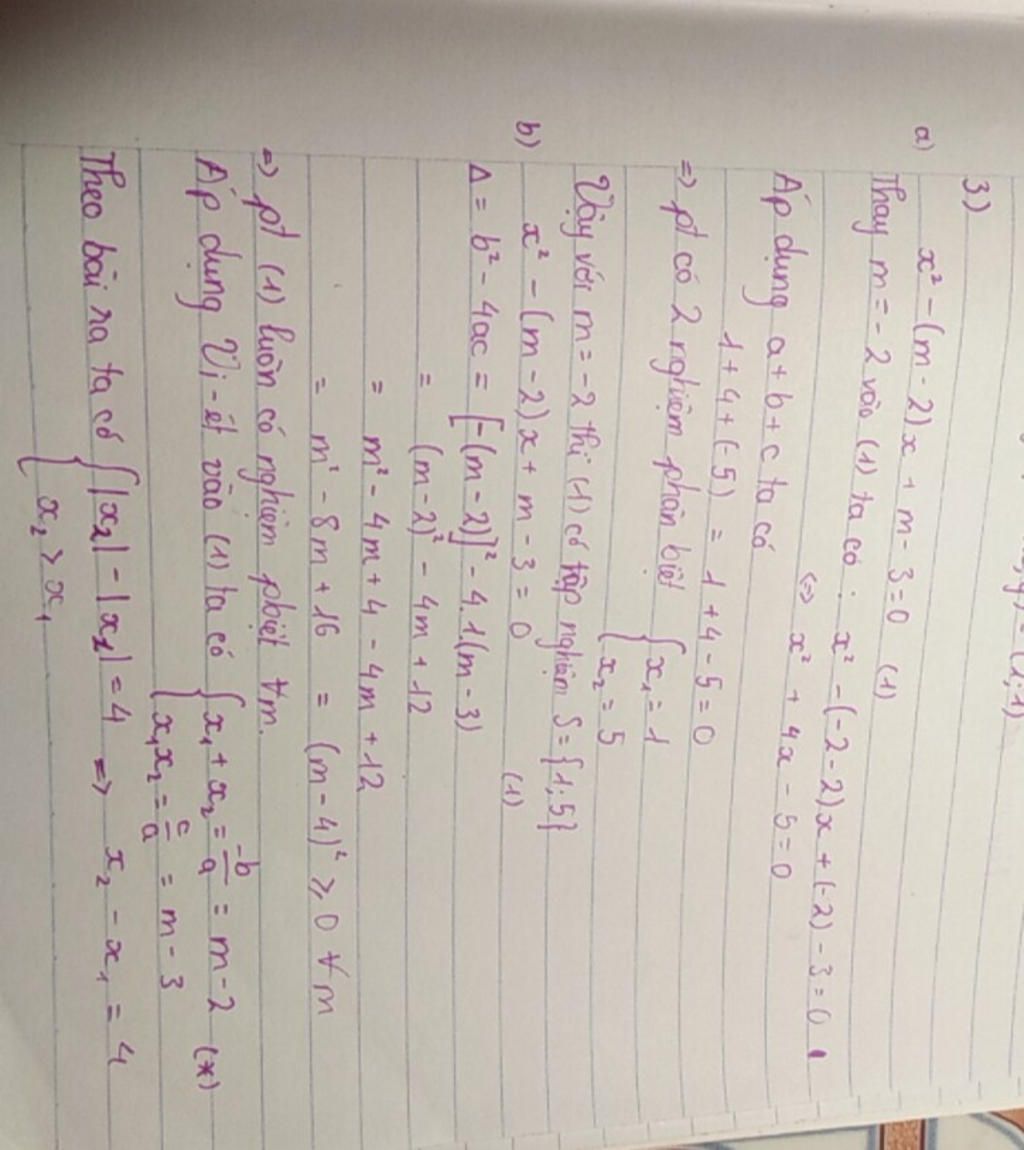 3.)
x² - (m - 2)x + m - 3 = 0 (1)
a)
Thay m = - 2 vào (1) ta có : x² - (-2 - 2)x + (-2) - 3 = 0
⇔ x² + 4x - 5 = 0
Áp dụng a + b + c ta có
1 + 4 + (-5) = 1 + 4 - 5 = 0
⇒ pt có 2 nghiệm phân biệt { x₁ = 1
x₂ = 5
Vậy với m = -2 thì (1) có tập nghiệm S = {1; 5}
b)
x² - (m - 2)x + m - 3 = 0 (1)
Δ = b² - 4ac = [-(m - 2)]² - 4.1.(m - 3)
= (m - 2)² - 4m + 12
= m² - 4m + 4 - 4m + 12
= m² - 8m + 16 = (m - 4)² ⩾ 0 ∀ m
⇒ pt (1) luôn có nghiệm pbiệt ∀m.
Áp dụng Vi-ét vào (1) ta có { x₁ + x₂ = -b/a = m - 2 (*)
x₁x₂ = c/a = m - 3
Theo bài ra ta có { |x₂| - |x₁| = 4 ⇒ x₂ - x₁ = 4
x₂ > x₁